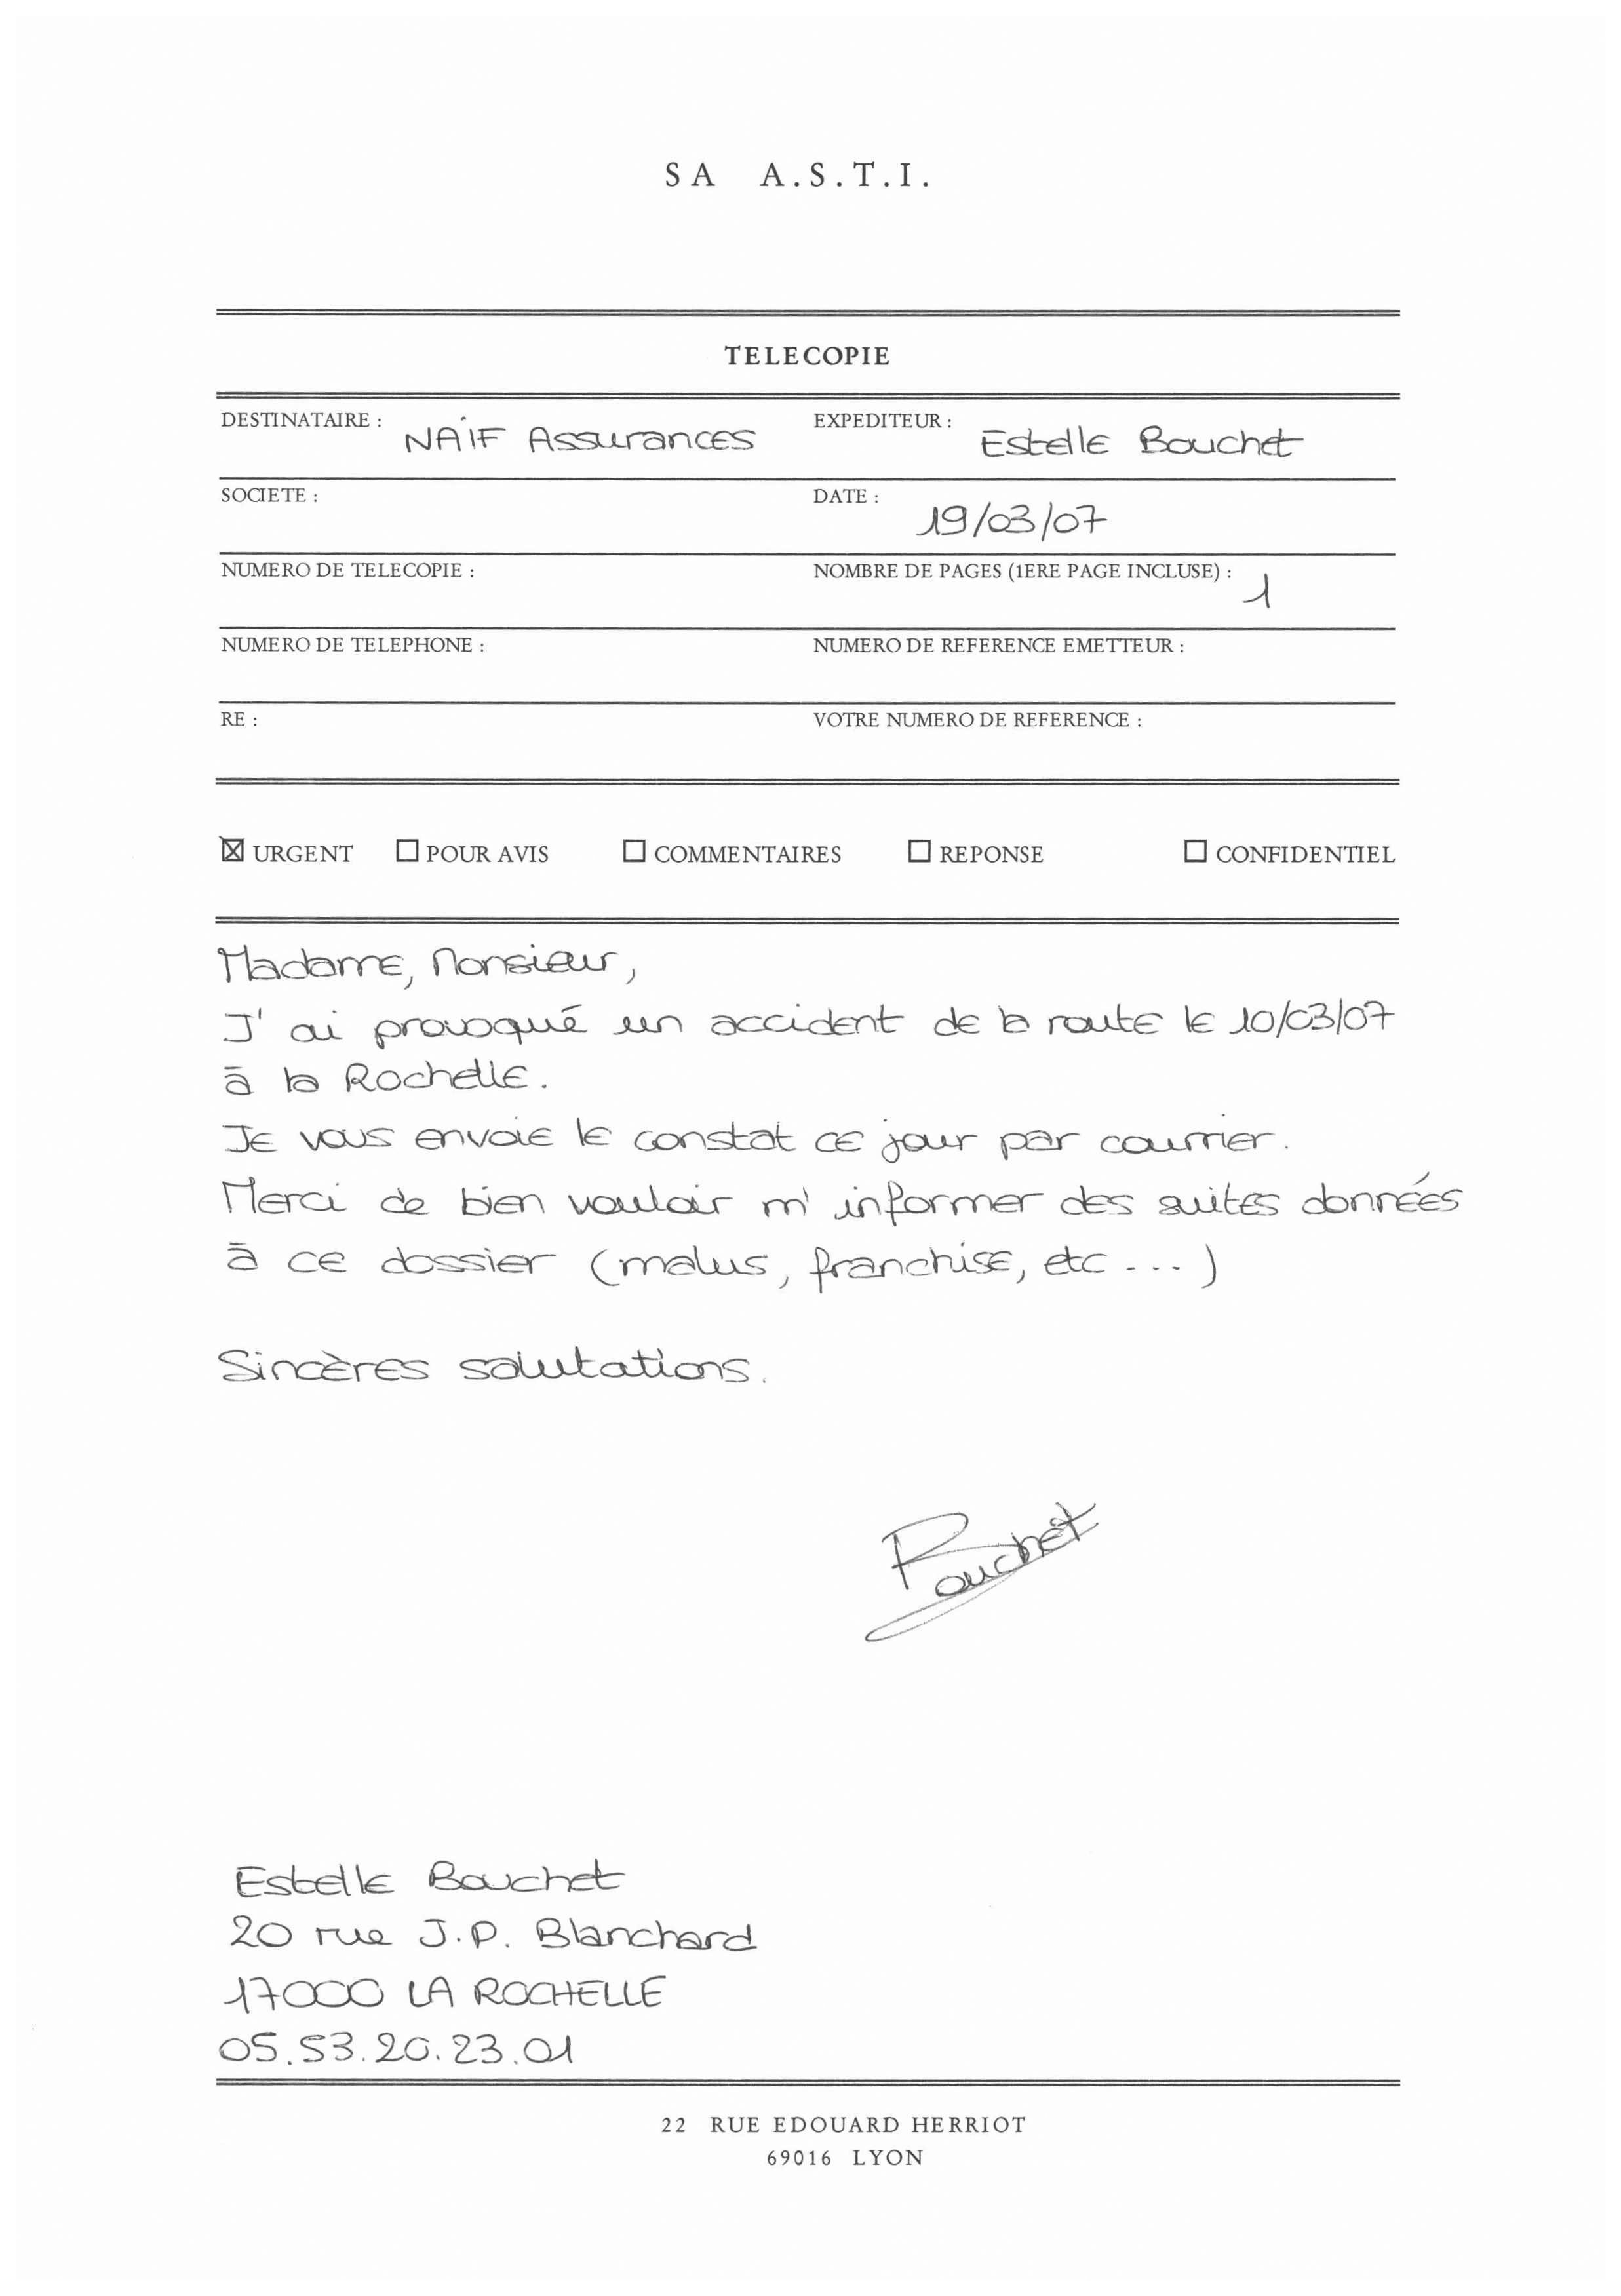 SA A.S.T.I.
TELECOPIE
DESTINATAIRE : NAÏF Assurances EXPEDITEUR : Estelle Bouchet
SOCIETE : DATE : 19/03/07
NUMERO DE TELECOPIE : NOMBRE DE PAGES (1ERE PAGE INCLUSE) : 1
NUMERO DE TELEPHONE : NUMERO DE REFERENCE EMETTEUR :
RE : VOTRE NUMERO DE REFERENCE :
☒ URGENT ☐ POUR AVIS ☐ COMMENTAIRES ☐ REPONSE ☐ CONFIDENTIEL
Madame, Monsieur,
J'ai provoqué un accident de la route le 10/03/07
à la Rochelle.
Je vous envoie le constat ce jour par courrier.
Merci de bien vouloir m'informer des suites données
à ce dossier (malus, franchise, etc...)
Sincères salutations.
Bouchet
Estelle Bouchet
20 rue J.P. Blanchard
17000 LA ROCHELLE
05.53.20.23.01
22 RUE EDOUARD HERRIOT
69016 LYON